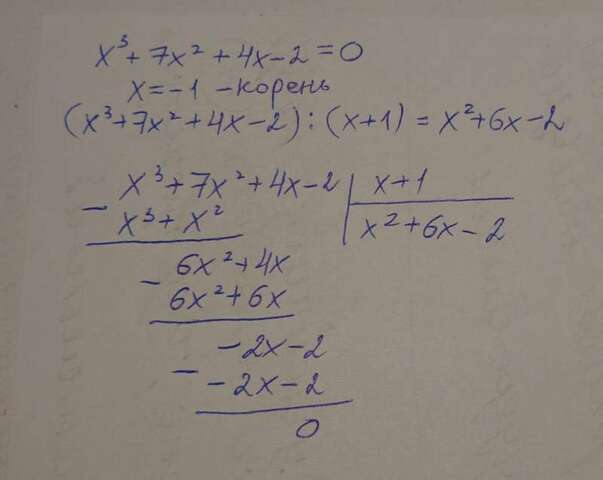 x³ + 7x² + 4x - 2 = 0
x = -1 - корень
(x³+7x²+4x-2) : (x+1) = x²+6x-2
x³+7x²+4x-2 | x+1
- x³+x² | x²+6x-2
6x²+4x
- 6x²+6x
-2x-2
- -2x-2
0